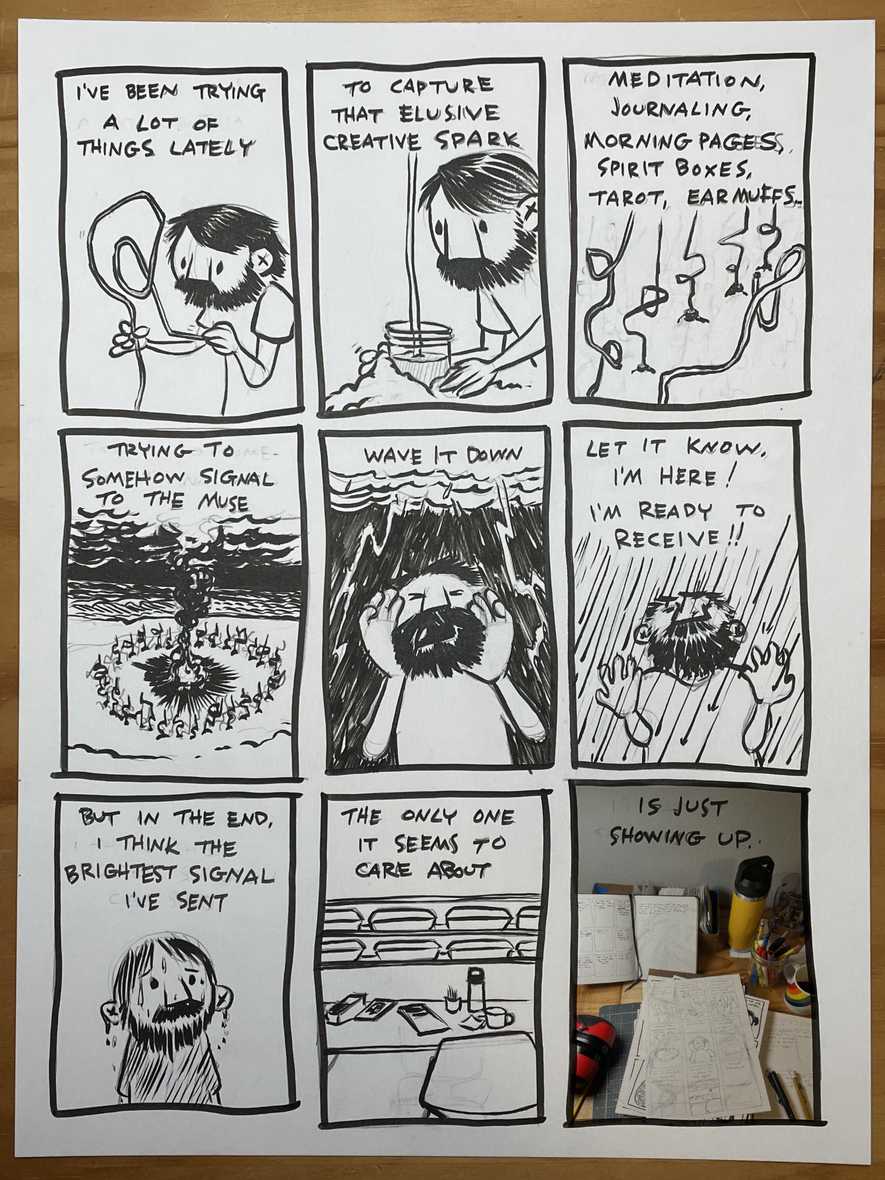 I'VE BEEN TRYING
A LOT OF
THINGS LATELY
TO CAPTURE
THAT ELUSIVE
CREATIVE SPARK
MEDITATION,
JOURNALING,
MORNING PAGES,
SPIRIT BOXES,
TAROT, EAR MUFFS...
TRYING TO
SOMEHOW SIGNAL
TO THE MUSE
WAVE IT DOWN
LET IT KNOW,
I'M HERE!
I'M READY TO
RECEIVE!!
BUT IN THE END,
I THINK THE
BRIGHTEST SIGNAL
I'VE SENT
THE ONLY ONE
IT SEEMS TO
CARE ABOUT
IS JUST
SHOWING UP.